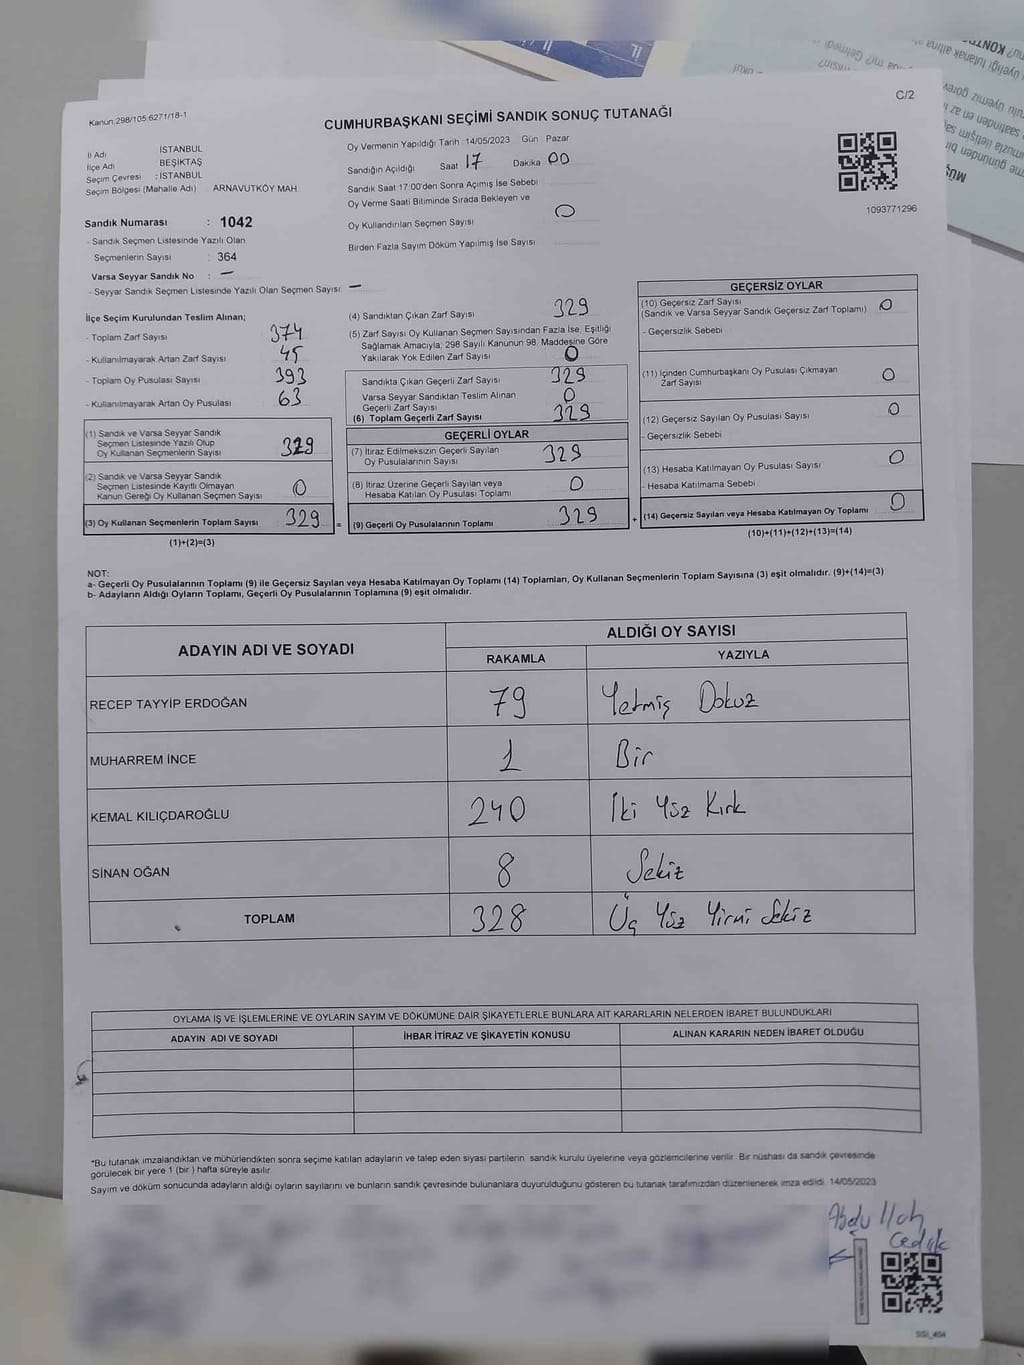 C/2
Kanun:298/105;6271/18-1
CUMHURBAŞKANI SEÇİMİ SANDIK SONUÇ TUTANAĞI
İl Adı İSTANBUL
İlçe Adı BEŞİKTAŞ
Seçim Çevresi : İSTANBUL
Seçim Bölgesi (Mahalle Adı) ARNAVUTKÖY MAH.
Sandık Numarası : 1042
- Sandık Seçmen Listesinde Yazılı Olan
Seçmenlerin Sayısı : 364
Varsa Seyyar Sandık No : —
- Seyyar Sandık Seçmen Listesinde Yazılı Olan Seçmen Sayısı: —
Oy Vermenin Yapıldığı Tarih 14/05/2023 Gün : Pazar
Sandığın Açıldığı Saat 17 Dakika 00
Sandık Saat 17:00'den Sonra Açımış İse Sebebi
Oy Verme Saati Bitiminde Sırada Bekleyen ve
Oy Kullandırılan Seçmen Sayısı 0
Birden Fazla Sayım Döküm Yapılmış İse Sayısı
1093771296
İlçe Seçim Kurulundan Teslim Alınan;
- Toplam Zarf Sayısı 374
- Kullanılmayarak Artan Zarf Sayısı 45
- Toplam Oy Pusulası Sayısı 393
- Kullanılmayarak Artan Oy Pusulası 63
(1) Sandık ve Varsa Seyyar Sandık
Seçmen Listesinde Yazılı Olup
Oy Kullanan Seçmenlerin Sayısı 329
(2) Sandık ve Varsa Seyyar Sandık
Seçmen Listesinde Kayıtlı Olmayan
Kanun Gereği Oy Kullanan Seçmen Sayısı 0
(3) Oy Kullanan Seçmenlerin Toplam Sayısı 329 =
(1)+(2)=(3)
(4) Sandıktan Çıkan Zarf Sayısı 329
(5) Zarf Sayısı Oy Kullanan Seçmen Sayısından Fazla İse, Eşitliği
Sağlamak Amacıyla; 298 Sayılı Kanunun 98. Maddesine Göre
Yakılarak Yok Edilen Zarf Sayısı 0
Sandıkta Çıkan Geçerli Zarf Sayısı 329
Varsa Seyyar Sandıktan Teslim Alınan
Geçerli Zarf Sayısı 0
(6) Toplam Geçerli Zarf Sayısı 329
GEÇERLİ OYLAR
(7) İtiraz Edilmeksizin Geçerli Sayılan
Oy Pusulalarının Sayısı 329
(8) İtiraz Üzerine Geçerli Sayılan veya
Hesaba Katılan Oy Pusulası Toplamı 0
(9) Geçerli Oy Pusulalarının Toplamı 329 +
GEÇERSİZ OYLAR
(10) Geçersiz Zarf Sayısı
(Sandık ve Varsa Seyyar Sandık Geçersiz Zarf Toplamı) 0
- Geçersizlik Sebebi
(11) İçinden Cumhurbaşkanı Oy Pusulası Çıkmayan
Zarf Sayısı 0
(12) Geçersiz Sayılan Oy Pusulası Sayısı 0
- Geçersizlik Sebebi
(13) Hesaba Katılmayan Oy Pusulası Sayısı 0
- Hesaba Katılmama Sebebi
(14) Geçersiz Sayılan veya Hesaba Katılmayan Oy Toplamı 0
(10)+(11)+(12)+(13)=(14)
NOT:
a- Geçerli Oy Pusulalarının Toplamı (9) ile Geçersiz Sayılan veya Hesaba Katılmayan Oy Toplamı (14) Toplamları, Oy Kullanan Seçmenlerin Toplam Sayısına (3) eşit olmalıdır. (9)+(14)=(3)
b- Adayların Aldığı Oyların Toplamı, Geçerli Oy Pusulalarının Toplamına (9) eşit olmalıdır.
ADAYIN ADI VE SOYADI ALDIĞI OY SAYISI
RAKAMLA YAZIYLA
RECEP TAYYİP ERDOĞAN 79 Yetmiş Dokuz
MUHARREM İNCE 1 Bir
KEMAL KILIÇDAROĞLU 240 İki Yüz Kırk
SİNAN OĞAN 8 Sekiz
TOPLAM 328 Üç Yüz Yirmi Sekiz
OYLAMA İŞ VE İŞLEMLERİNE VE OYLARIN SAYIM VE DÖKÜMÜNE DAİR ŞİKAYETLERLE BUNLARA AİT KARARLARIN NELERDEN İBARET BULUNDUKLARI
ADAYIN ADI VE SOYADI İHBAR İTİRAZ VE ŞİKAYETİN KONUSU ALINAN KARARIN NEDEN İBARET OLDUĞU
*Bu tutanak imzalandıktan ve mühürlendikten sonra seçime katılan adayların ve talep eden siyasi partilerin sandık kurulu üyelerine veya gözlemcilerine verilir. Bir nüshası da sandık çevresinde
görülecek bir yere 1 (bir) hafta süreyle asılır.
Sayım ve döküm sonucunda adayların aldığı oyların sayılarını ve bunların sandık çevresinde bulunanlara duyurulduğunu gösteren bu tutanak tarafımızdan düzenlenerek imza edildi. 14/05/2023
Abdullah